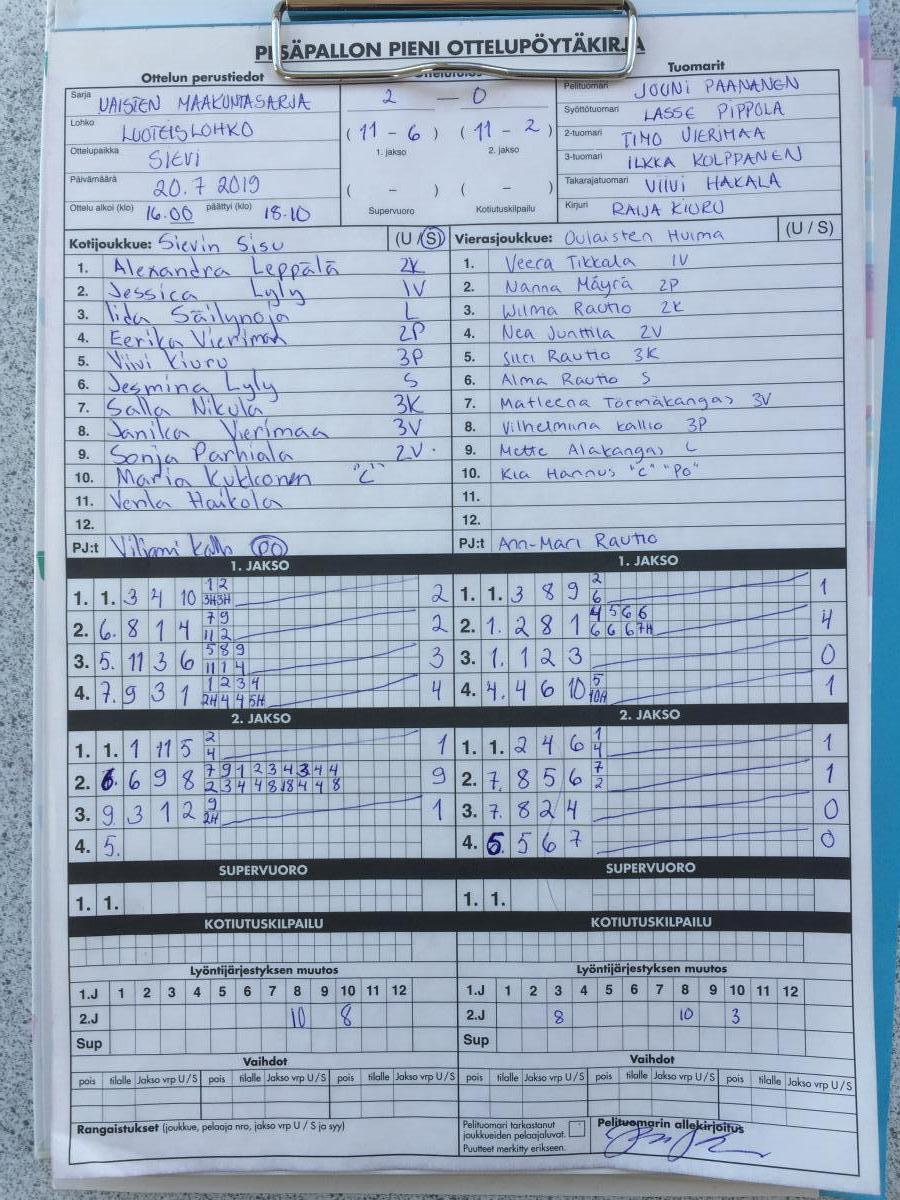 PESÄPALLON PIENI OTTELUPÖYTÄKIRJA
Ottelun perustiedot
Ottelutulos
Tuomarit
Sarja NAISTEN MAAKUNTASARJA
Lohko LUOTEISLOHKO
Ottelupaikka SIEVI
Päivämäärä 20.7 2019
Ottelu alkoi (klo) 16.00 päättyi (klo) 18.10
2 — 0
(11 - 6) (11 - 2)
1. jakso 2. jakso
( - ) ( - )
Supervuoro Kotiutuskilpailu
Pelituomari JOUNI PAANANEN
Syöttötuomari LASSE PIPPOLA
2-tuomari TIMO VIERIMAA
3-tuomari ILKKA KOLPPANEN
Takarajatuomari VIIVI HAKALA
Kirjuri RAIJA KIURU
Kotijoukkue: Sievin Sisu (U / S)
1. Alexandra Leppälä 2K
2. Jessica Lyly 1V
3. Iida Säilynoja L
4. Eerika Vierimaa 2P
5. Viivi Kiuru 3P
6. Jesmina Lyly S
7. Salla Nikula 3K
8. Janika Vierimaa 3V
9. Sonja Parhiala 2V
10. Maria Kukkonen "C"
11. Venla Haikola
12.
PJ:t Viljami Kallo PO
Vierasjoukkue: Oulaisten Huima (U / S)
1. Veera Tikkala 1V
2. Nanna Mäyrä 2P
3. Wilma Rautio 2K
4. Nea Junttila 2V
5. Siiri Rautio 3K
6. Alma Rautio S
7. Matleena Törmäkangas 3V
8. Vilhelmiina Kallio 3P
9. Mette Alakangas L
10. Kia Hannus "C" "Po"
11.
12.
PJ:t Ann-Mari Rautio
1. JAKSO
1. 1. 3 4 10 1 2 2
3H 3H
2. 6. 8 1 4 7 9 2
11 2
3. 5. 11 3 6 5 8 9 3
11 1 4
4. 7. 9 3 1 1 2 3 4 4
2H 4 4 5H
1. JAKSO
1. 1. 3 8 9 2 1
6
2. 1. 2 8 1 4 5 6 6 4
6 6 6 7H
3. 1. 1 2 3 0
4. 4. 4 6 10 5 1
10H
2. JAKSO
1. 1. 1 11 5 2 1
4
2. 6. 6 9 8 7 9 1 2 3 4 3 4 4 9
2 3 4 4 8 8 4 4 8
3. 9. 3 1 2 9 1
2H
4. 5.
2. JAKSO
1. 1. 2 4 6 1 1
4
2. 7. 8 5 6 7 1
2
3. 7. 8 2 4 0
4. 5. 5 6 7 0
SUPERVUORO
1. 1.
SUPERVUORO
1. 1.
KOTIUTUSKILPAILU
KOTIUTUSKILPAILU
Lyöntijärjestyksen muutos
1.J 1 2 3 4 5 6 7 8 9 10 11 12
2.J 10 8
Sup
Lyöntijärjestyksen muutos
1.J 1 2 3 4 5 6 7 8 9 10 11 12
2.J 8 10 3
Sup
Vaihdot
pois tilalle Jakso vrp U/S pois tilalle Jakso vrp U/S pois tilalle Jakso vrp U/S
Vaihdot
pois tilalle Jakso vrp U/S pois tilalle Jakso vrp U/S pois tilalle Jakso vrp U/S
Rangaistukset (joukkue, pelaaja nro, jakso vrp U / S ja syy)
Pelituomari tarkastanut
joukkueiden pelaajaluvat.
Puutteet merkitty erikseen.
Pelituomarin allekirjoitus